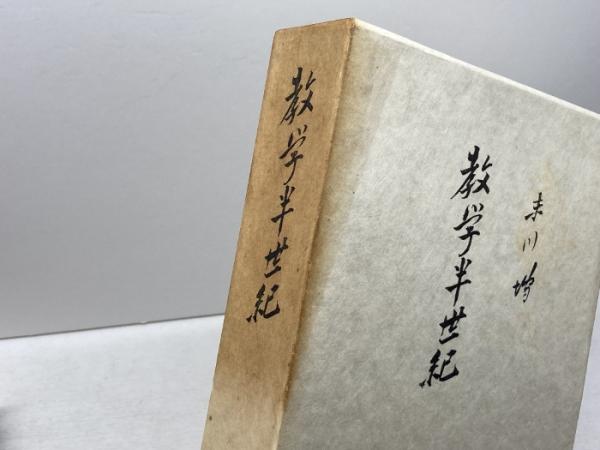 教学半世紀
末川 均
教学半世紀